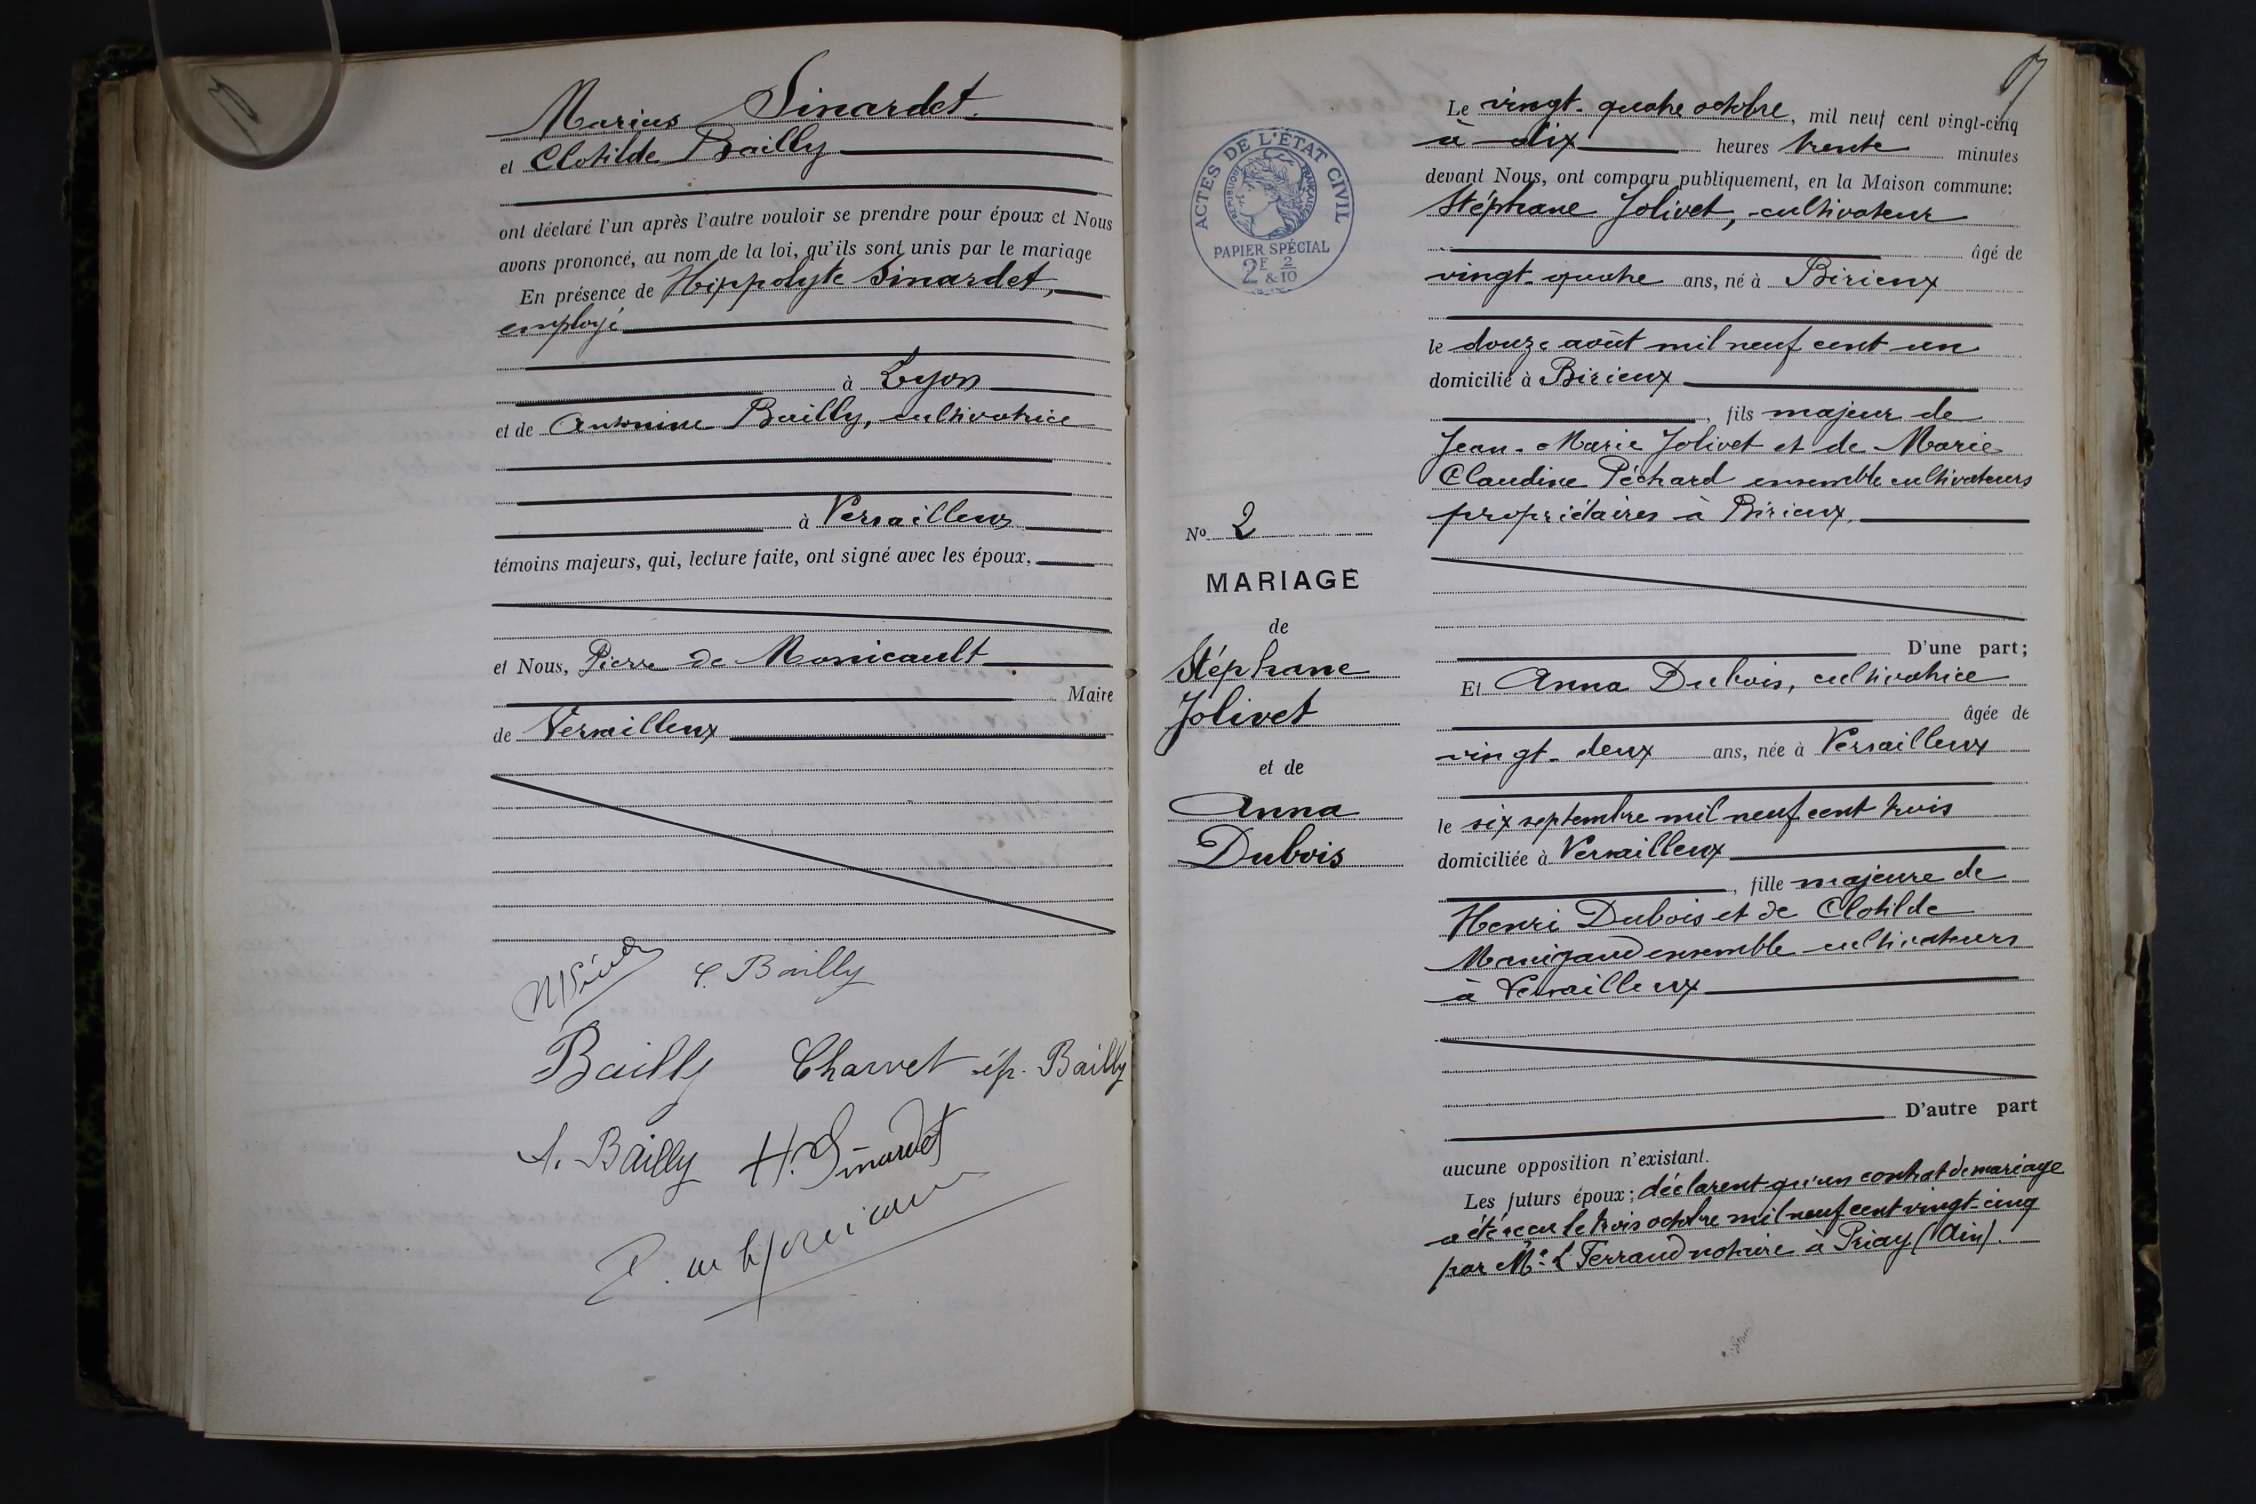 Marius Sinardet.
et Clotilde Bailly
ont déclaré l'un après l'autre vouloir se prendre pour époux et Nous
avons prononcé, au nom de la loi, qu'ils sont unis par le mariage
En présence de Hippolyte Sinardet,
employé
à Lyon
et de Antonine Bailly, cultivatrice
à Versailleux
témoins majeurs, qui, lecture faite, ont signé avec les époux,
et Nous, Pierre de Monicault
Maire
de Versailleux
C. Bailly
Bailly Charvet ép. Bailly
A. Bailly H. Sinardet
ACTES DE L'ÉTAT CIVIL
RÉPUBLIQUE FRANÇAISE
PAPIER SPÉCIAL
2F & 2/10
No 2
MARIAGE
de
Stéphane
Jolivet
et de
Anna
Dubois
Le vingt-quatre octobre, mil neuf cent vingt-cinq
à dix heures trente minutes
devant Nous, ont comparu publiquement, en la Maison commune:
Stéphane Jolivet, cultivateur
âgé de
vingt-quatre ans, né à Birieux
le douze août mil neuf cent un
domicilié à Birieux
, fils majeur de
Jean-Marie Jolivet et de Marie
Claudine Péchard ensemble cultivateurs
propriétaires à Birieux
D'une part;
Et Anna Dubois, cultivatrice
âgée de
vingt-deux ans, née à Versailleux
le six septembre mil neuf cent trois
domiciliée à Versailleux
, fille majeure de
Henri Dubois et de Clotilde
Manigand ensemble cultivateurs
à Versailleux
D'autre part
aucune opposition n'existant.
Les futurs époux; déclarent qu'un contrat de mariage
a été reçu le trois octobre mil neuf cent vingt-cinq
par Me L. Ferrand notaire à Priay (Ain).